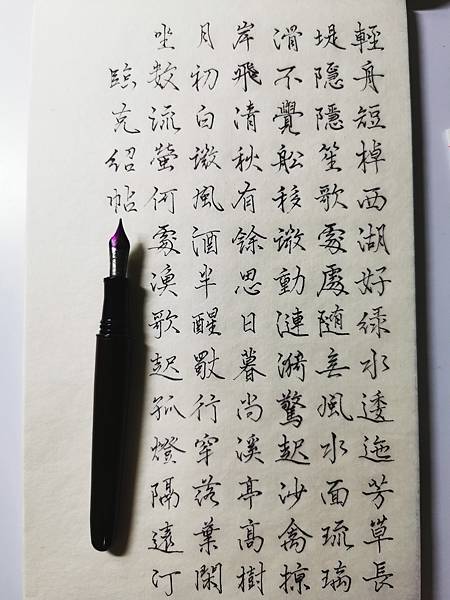 輕舟短棹西湖好綠水逶迤芳草長
堤隱隱笙歌處處隨无風水面琉璃
滑不覺舩移微動漣漪驚起沙禽掠
岸飛清秋有餘思日暮尚溪亭高樹
月初白微風酒半醒獨行穿落葉閑
坐數流螢何處漁歌起孤燈隔遠汀
臨紹帖